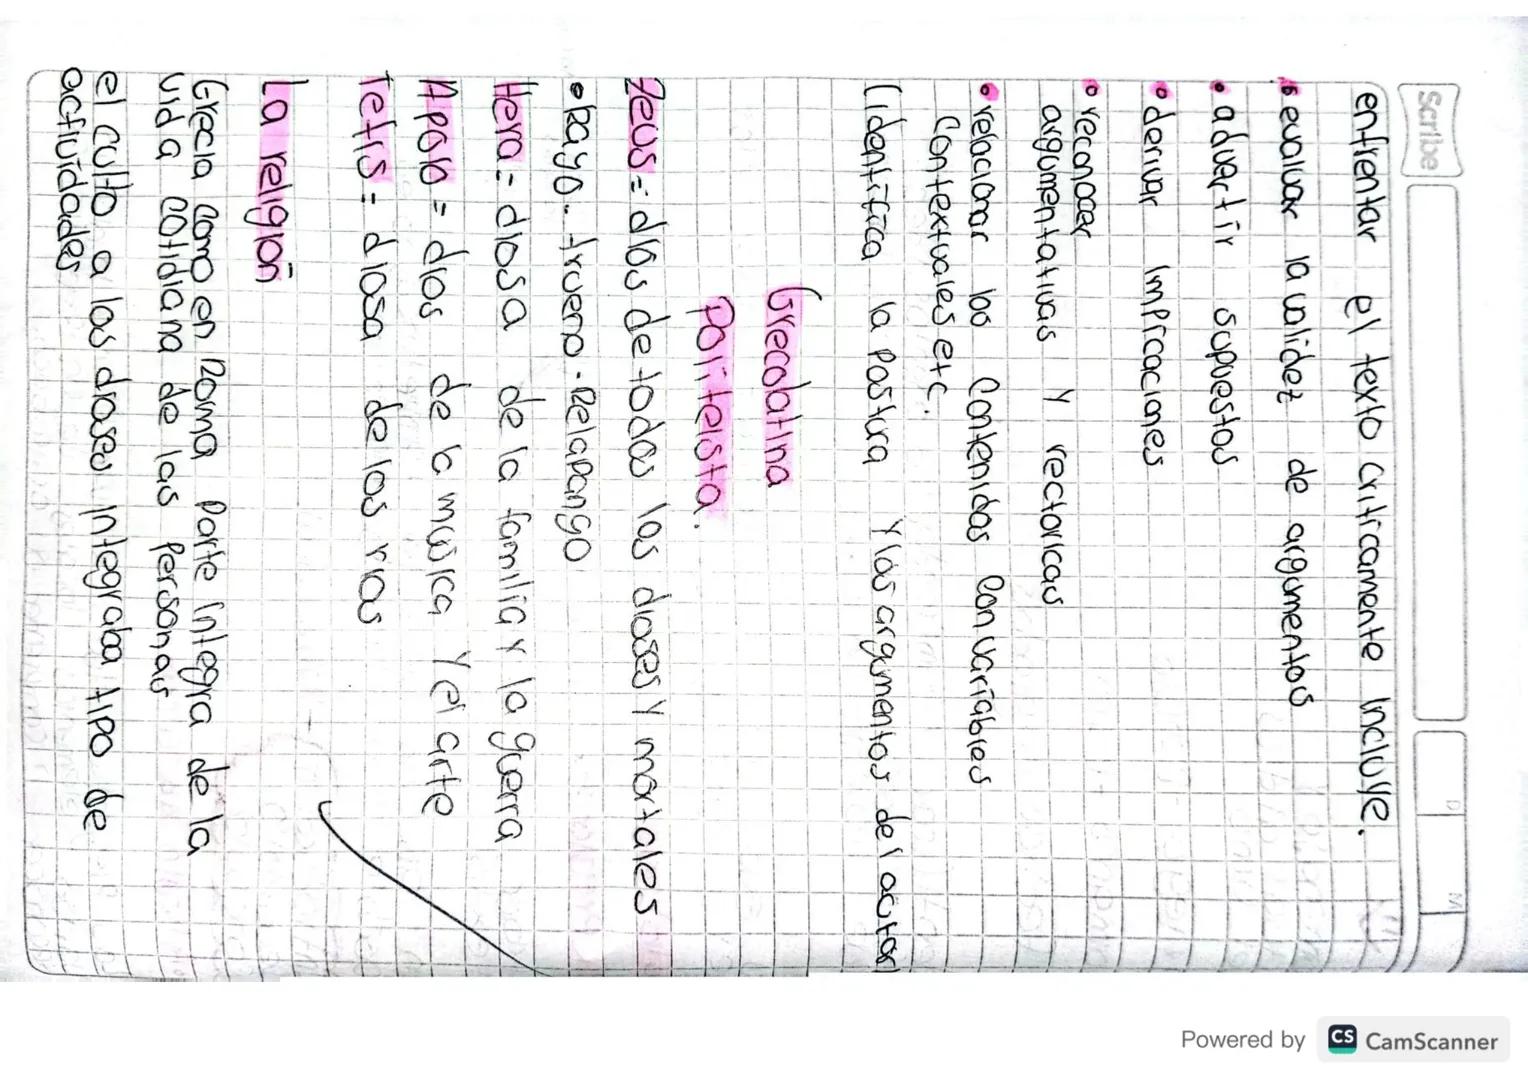 Scribe
D M
enfrentar el texto criticamente incluye.
• evaluar la validez de argumentos
• advertir supuestos
• derivar implicaciones
• reconocer
argumentativas y rectoricas
• relacionar los contenidos con variables
contextuales etc.
(identifica la postura y los argumentos del autor
Grecolatina
Politeista.
Zeus = dios de todos los dioses y mortales
• Rayo - trueno - Relapango
Hera = diosa de la familia y la guerra
Apolo = dios de la música y el arte
Tetis = diosa de los rios
La religión
Grecia como en Roma parte integra de la
vida cotidiana de las personas
el culto a los dioses integraba tipo de
actividades
Powered by CS CamScanner